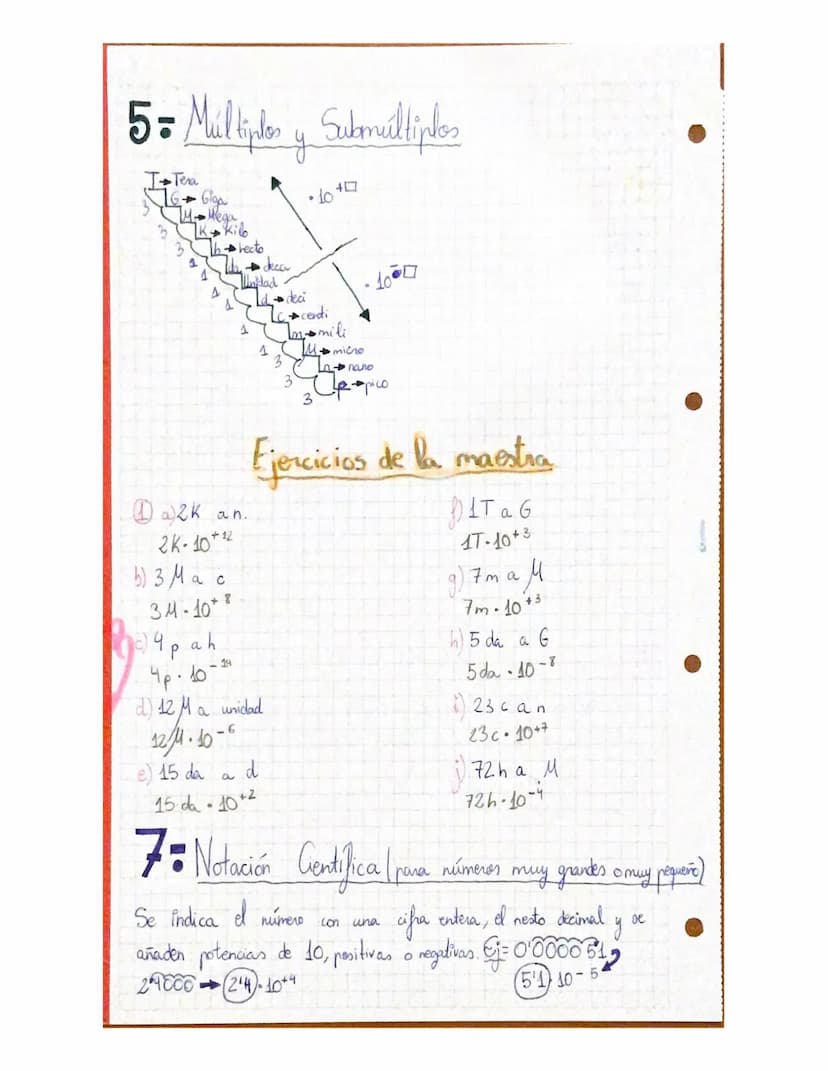 5= Múltiplos y Submúltiplos
T→Tera
G→Giga
M→Mega
K→Kilo
h→hecto
da→deca
Unidad
d→deci
c→centi
m→mili
µ→micro
n→nano
p→pico
3
3
3
1
1
1
1
1
1
3
3
3
· 10 +□
· 10 -□
Ejercicios de la maestra
① a) 2K a n.
2K· 10+12
b) 3 M a c
3M · 10+8
c) 4 p a h
4p · 10-14
d) 12 µ a unidad
12µ · 10-6
e) 15 da a d
15 da · 10+2
f) 1T a G
1T · 10+3
g) 7m a µ
7m · 10+3
h) 5 da a G
5da · 10-8
i) 23 c a n
23c · 10+7
j) 72 h a M
72h · 10-4
7= Notación Científica (para números muy grandes o muy pequeño)
Se indica el número con una cifra entera, el resto decimal y se
añaden potencias de 10, positivas o negativas. Ej= 0'0000 51
24000 → 2'4 · 10+4 5'1 · 10-5